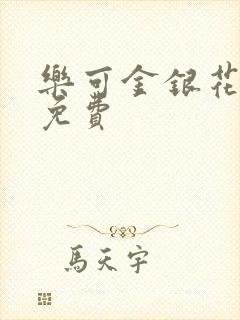 樂可金銀花
免費
馬天宇